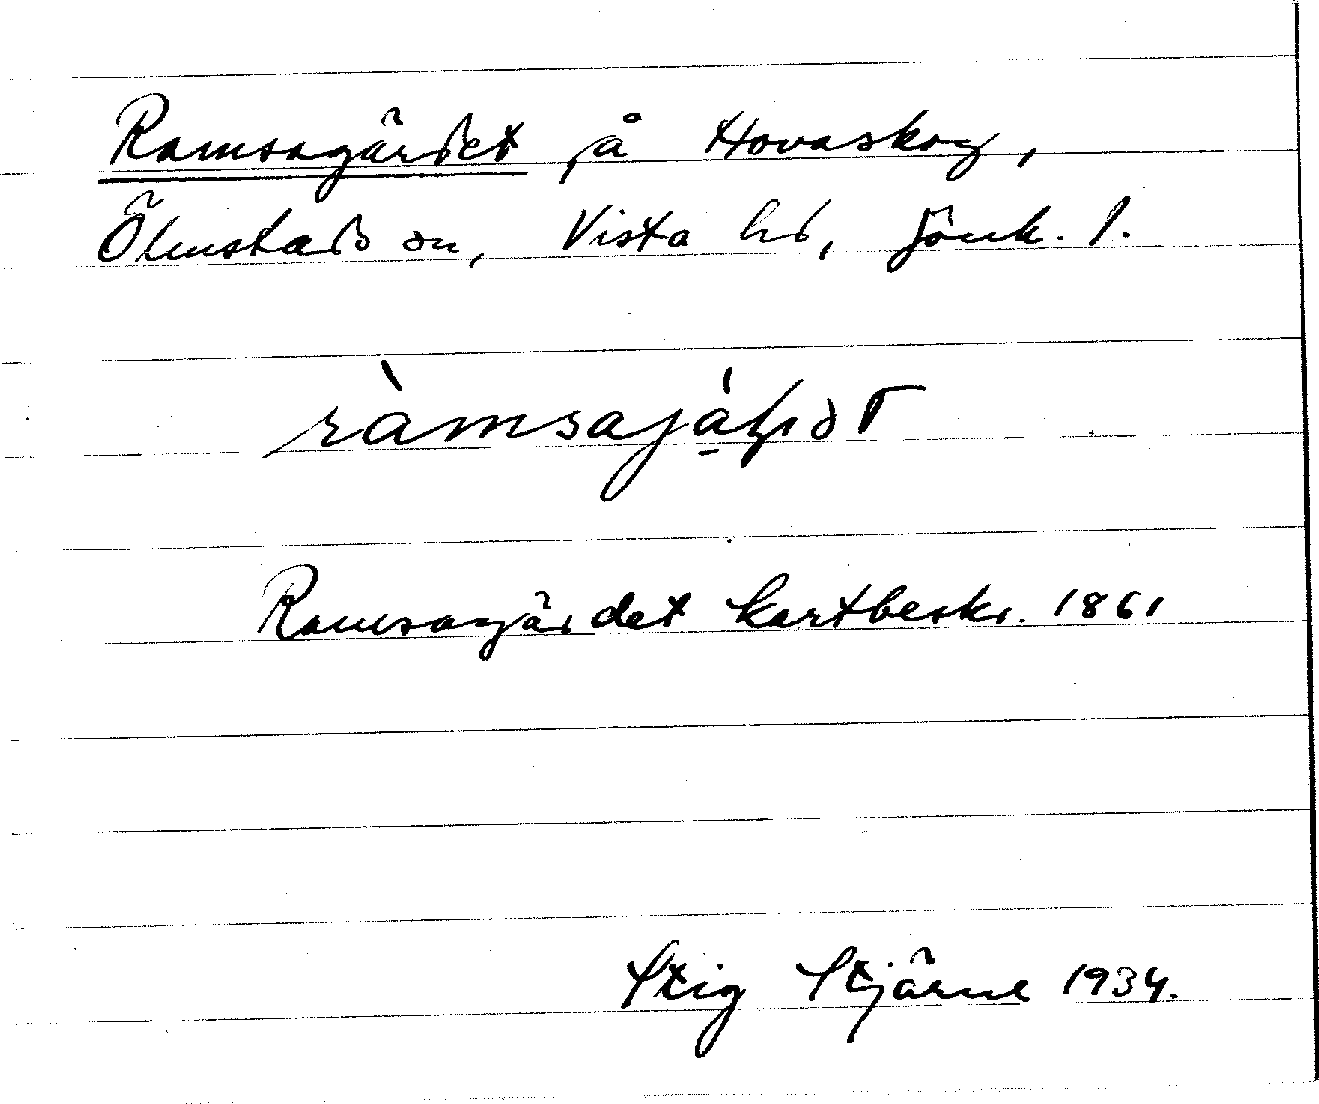 Ramsagärdet på Hovaskog,
Ölmstads sn, Vista hd, Jönk. l.
ràmsajá̱ḥər
Ramsagärdet kartbeskr. 1861
Stig Stjärne 1934.